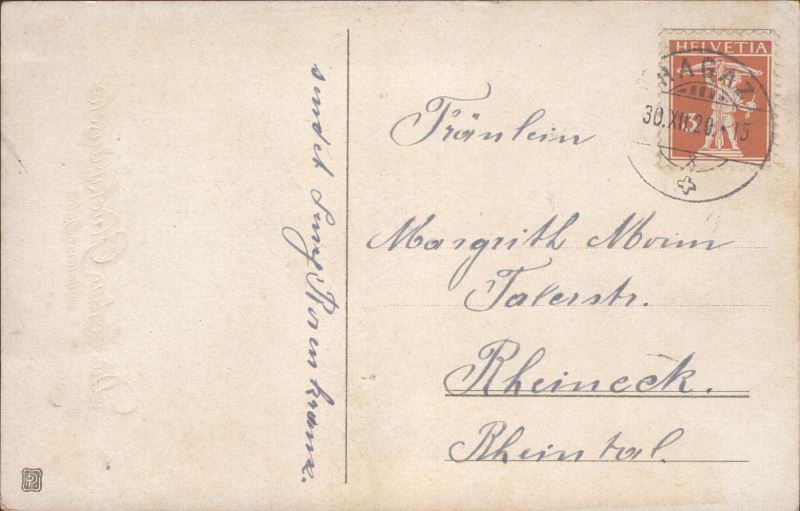 HELVETIA
RAGAZ
30.XII.20.-15
Fräulein
Margrith
Talerstr.
Rheineck.
Rheintal.
sendet Rosenkranz.